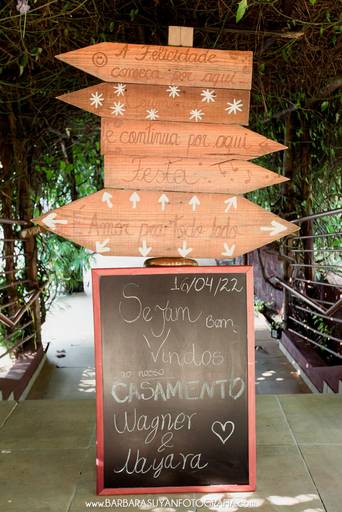 A Felicidade
começa por aqui
e continua por aqui
Festa
E Amor por todo lado
16/04/22
Sejam Bem
Vindos
ao nosso
CASAMENTO
Wagner
&
Nayara
WWW.BARBARASUYANFOTOGRAFIA.COM